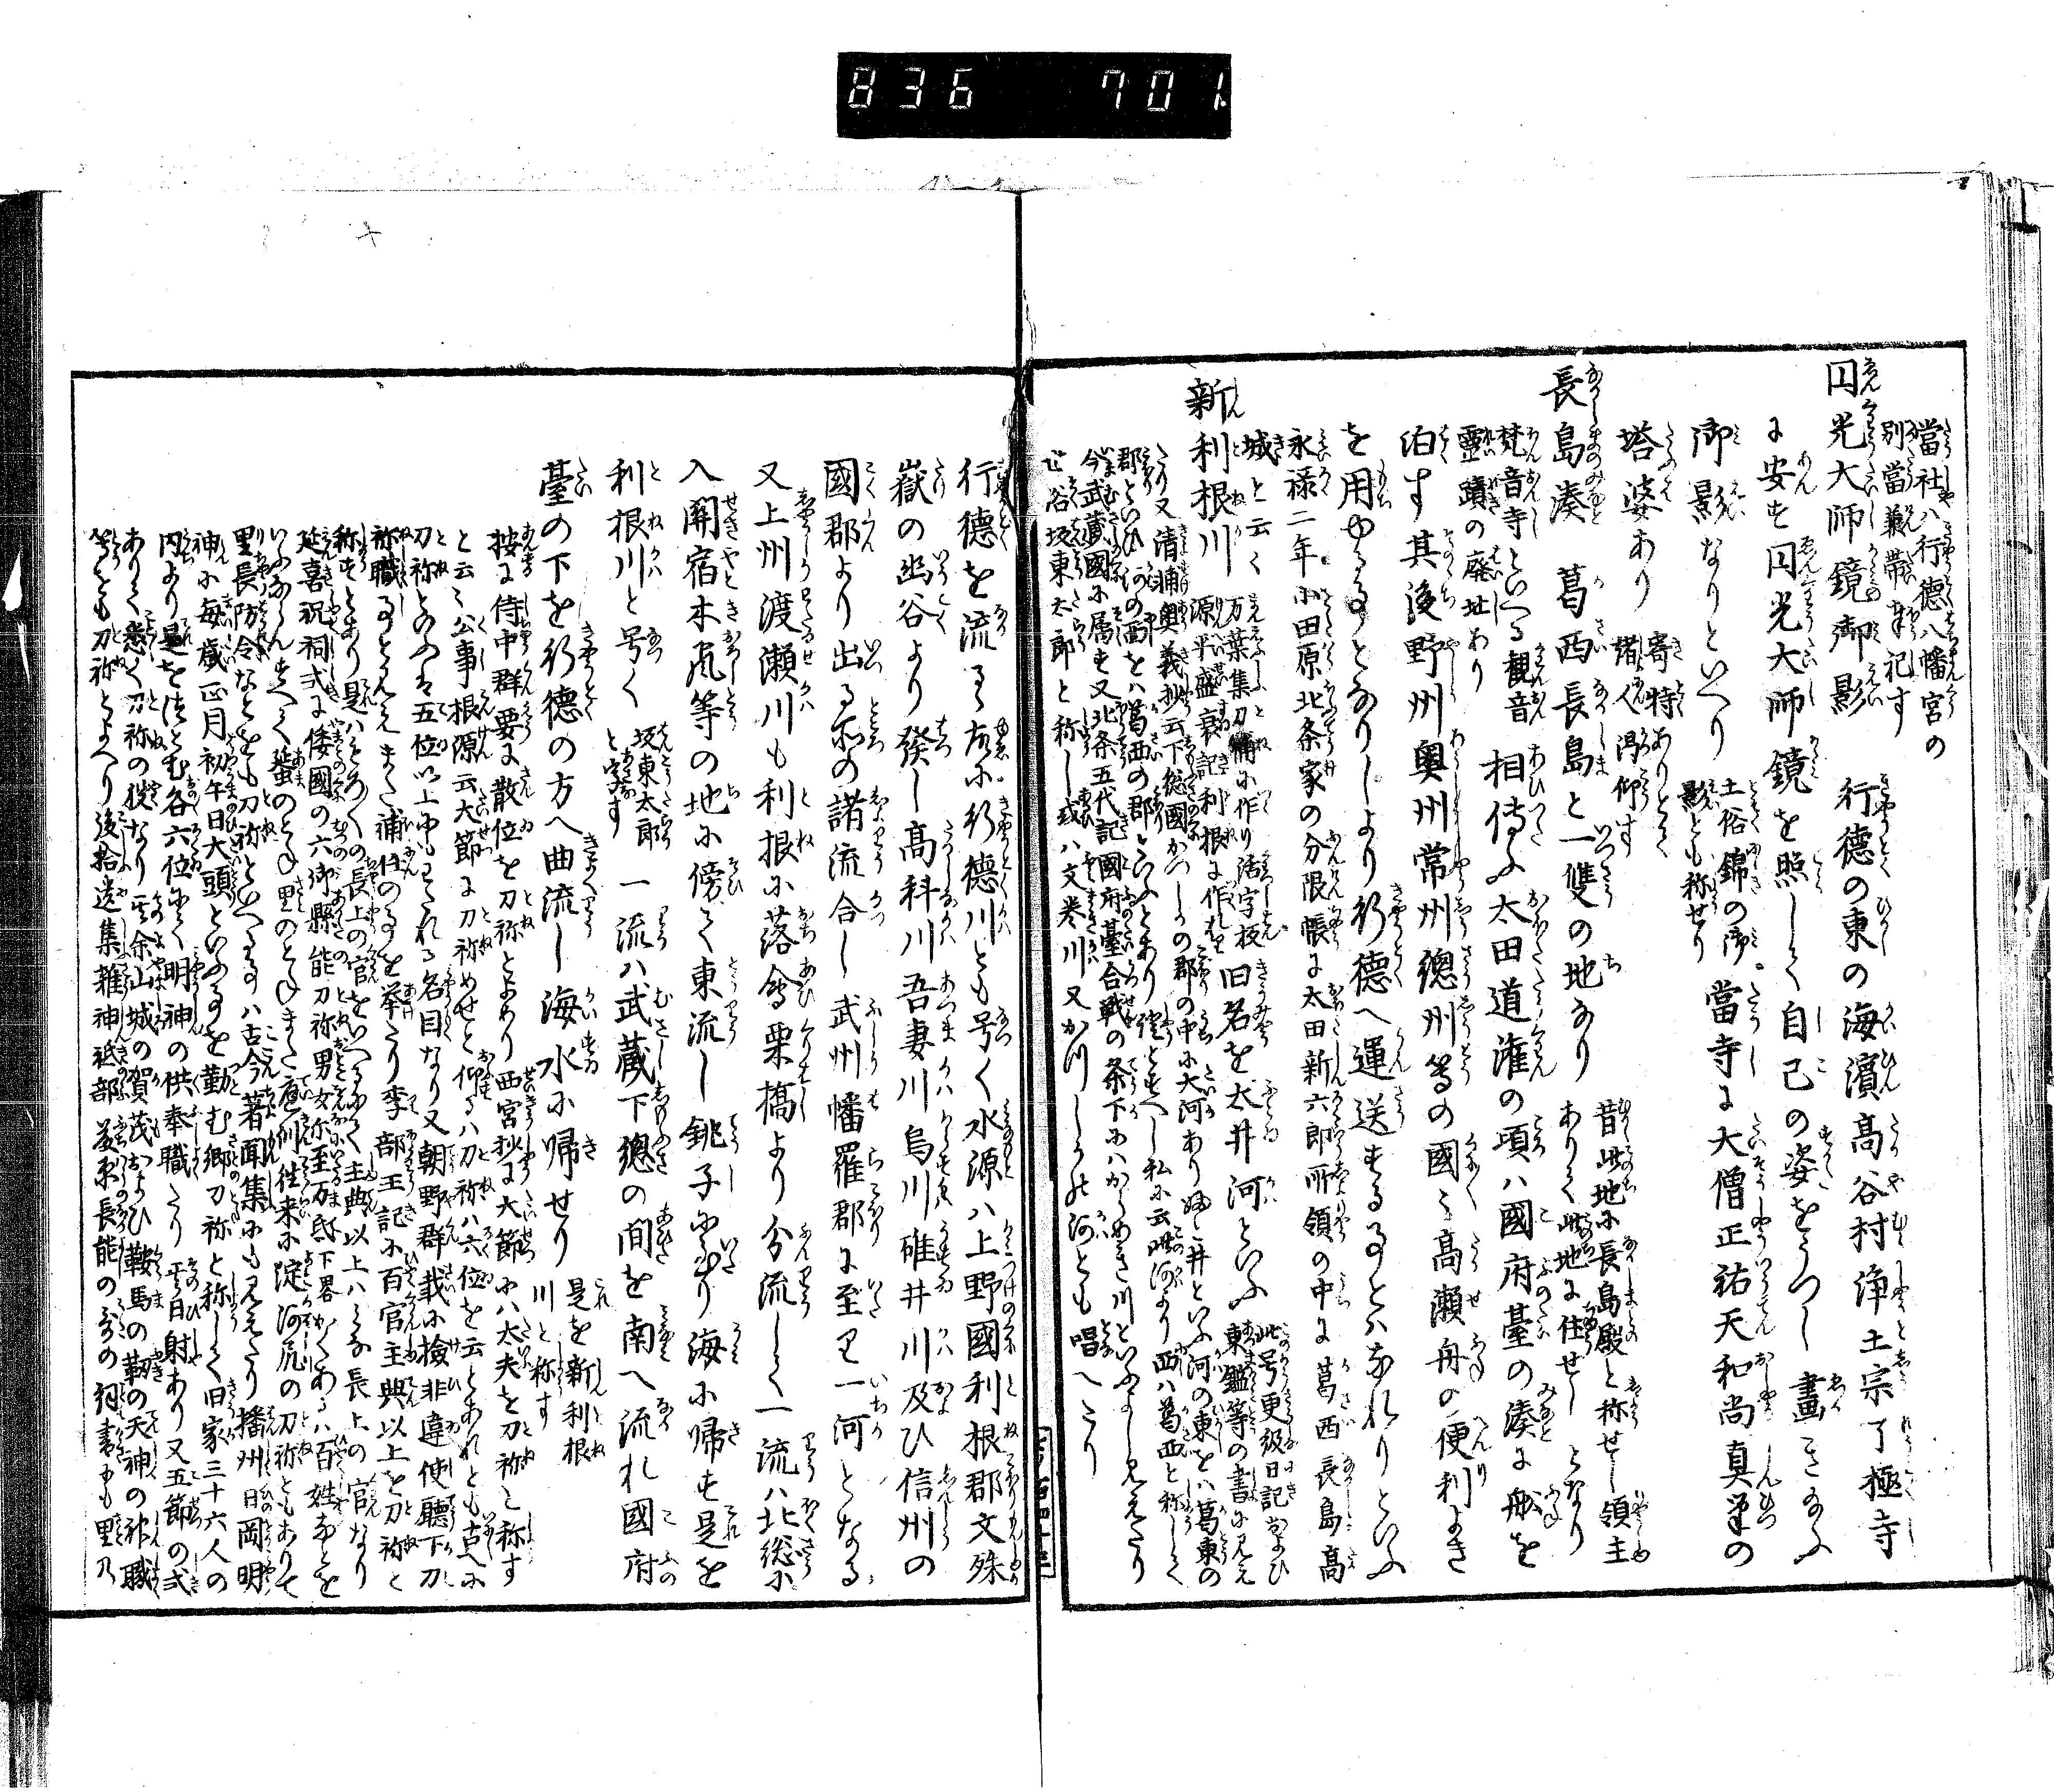 836 701
當社ハ行德八幡宮の
別當兼帶奉祀す
円光大師鏡御影 行德の東の海濱高谷村浄土宗了極寺
に安す円光大師鏡を照して自己の姿をうつし画き給ふ
御影なりといへり 土俗錦の御影とも称せり 當寺に大僧正祐天和尚真筆の
塔婆あり 寄特ありとて諸人渇仰す
長島湊 葛西長島と一雙の地なり 昔此地に長島殿と称せし領主ありて此地に住せしとなり
梵音寺といへる観音靈蹟の廢址あり 相傳ふ太田道潅の頃ハ國府臺の湊に舩を
泊す其後野州奥州常州總州等の國々高瀬舟の便利よき
を用ゆる事となりしより行德へ運送する事とハなれりといふ
永禄二年小田原北条家の分限帳に太田新六郎所領の中に葛西長島高
城と云々
新利根川 万葉集刀祢に作り活字板源平盛衰記利根に作れり 旧名を太井河といふ 此号更級日記および東鑑等の書に見え
たり又清輔奥義抄云下總國かつしかの郡の中に大河ありふとゐといふ河の東をハ葛東の
郡といひ河の西をハ葛西の郡といふとあり
今武藏國に属す又北条五代記國府臺合戦の条下にハからめき川といふよし見えたり
世谷坂東太郎と称し或ハ文巻川又かつしかの河とも唱へたり
行德を流るゝ故に行德川とも号く水源ハ上野國利根郡文殊
嶽の幽谷より發し高科川吾妻川烏川碓井川及ひ信州の
國郡より出る所の諸流合し武州幡羅郡に至り一河となる
又上州渡瀬川も利根に落合栗橋より分流して一流ハ北総に
入関宿木颪等の地に傍て東流し銚子に至り海に帰す是を
利根川と号く 坂東太郎と字す 一流ハ武蔵下總の間を南へ流れ國府
臺の下を行德の方へ曲流し海水に帰せり 是を新利根川と称す
按に侍中群要に散位を刀祢とよめり西宮抄に大節にハ大夫を刀祢と称す
と云々公事根源云大節に刀祢めせと仰るハ刀祢ハ六位を云とあれとも古へに
刀祢とのふハ五位以上にもわたれる名目なり又朝野群載に檢非違使廳下刀
祢職事とみえまた補任の事を挙たり李部王記に百官主典以上を刀祢と
称すとあり是ハをの〳〵の長上の官をいへるにて主典以上ハみな長上の官なり
延喜祝詞式に倭國の六御縣能刀祢男女尓至万弖下畧かくあるハ百姓などを
里長防令なとをも刀祢といへる事ハ古今著聞集にも見えたり播州日岡明
神に毎歳正月初午日大頭といふ事を勤む郷刀祢と称して旧家三十六人の
内より是をつとむ各六位にて明神の供奉職たり平日射あり又五節の式
ありて悉く刀祢の役なり其余山城の賀茂および鞍馬の靭の天神の祢職
等をも刀祢とよへり後拾遺集雜神祇部藤原長能の歌の詞書にも里乃